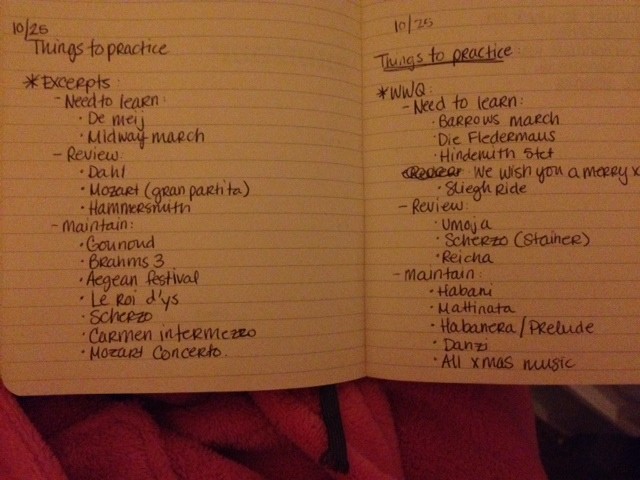 10/25
Things to practice
*Excerpts:
- Need to learn:
· De meij
· Midway march
- Review:
· Dahl
· Mozart (gran partita)
· Hammersmith
- Maintain:
· Gounoud
· Brahms 3
· Aegean festival
· Le Roi d'ys
· Scherzo
· Carmen intermezzo
· Mozart Concerto.
10/25
Things to practice:
*WWQ:
- Need to learn:
· Barrows march
· Die Fledermaus
· Hindemith 5tet
We wish you a merry x
· Sliegh Ride
- Review:
· Umoja
· Scherzo (Stainer)
· Reicha
- Maintain:
· Habani
· Mattinata
· Habanera/Prelude
· Danzi
· All xmas music